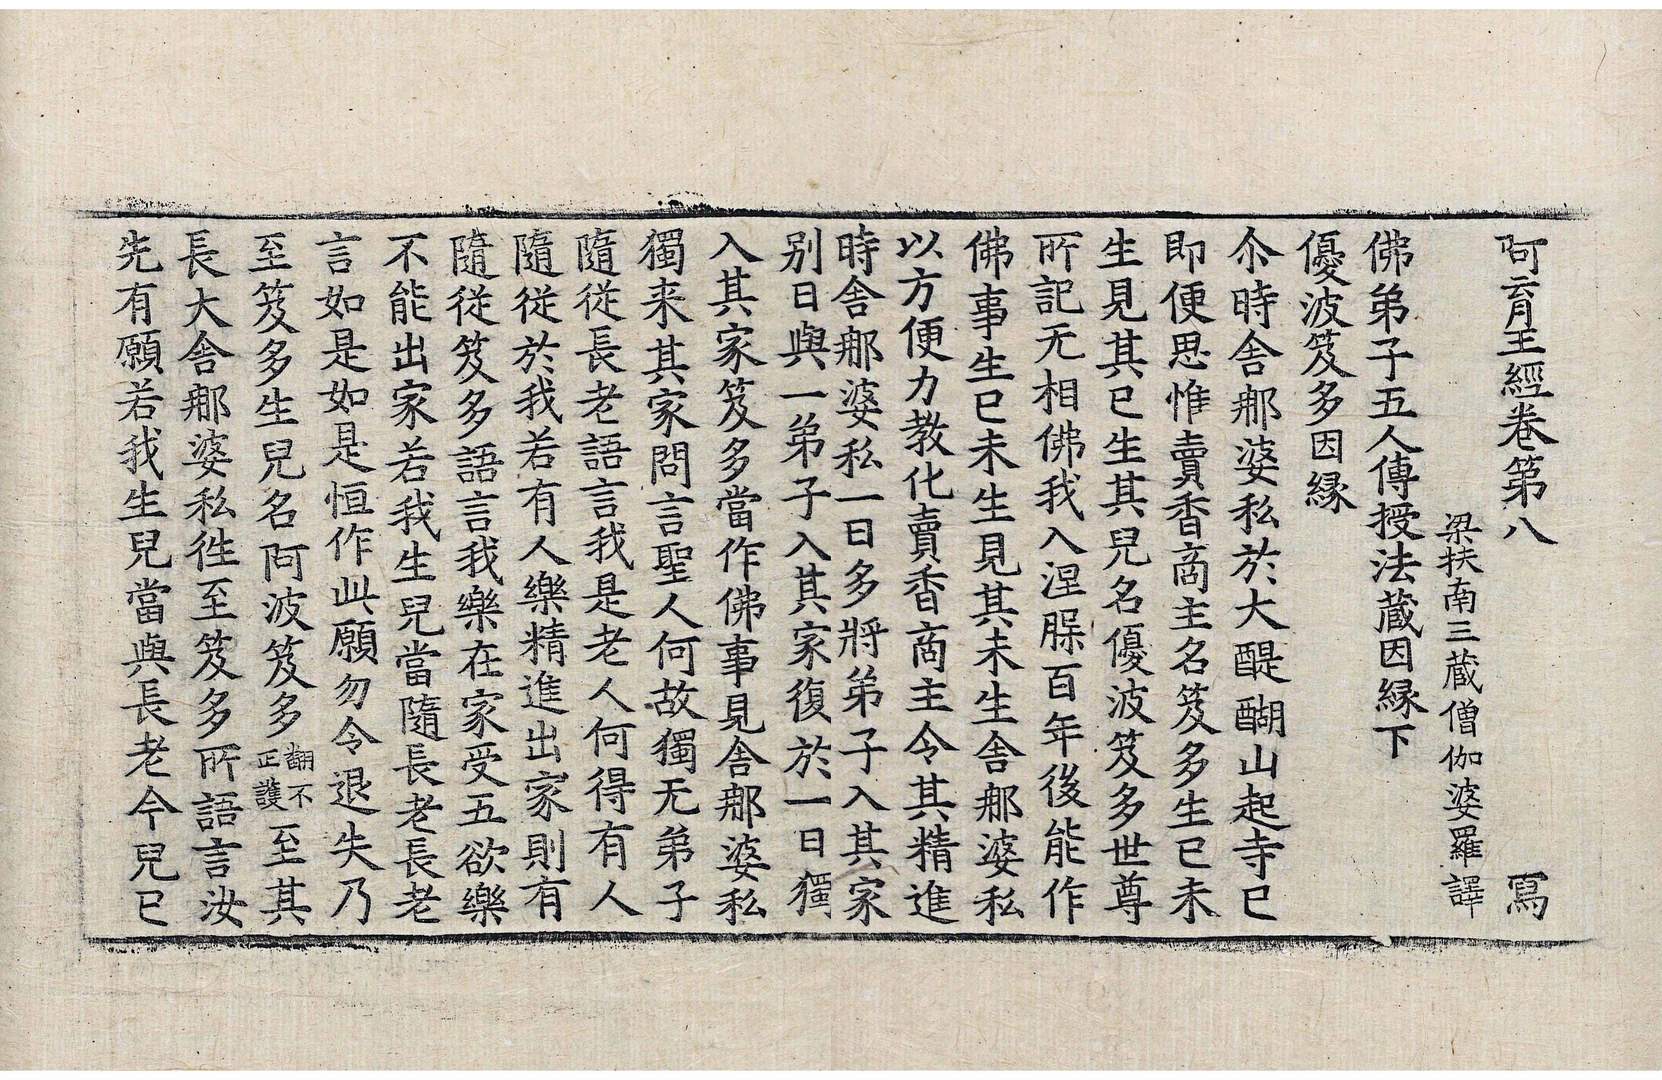 阿育王經卷第八　寫
梁扶南三藏僧伽婆羅譯
佛弟子五人傳授法藏因縁下
優波笈多因縁
尒時舎那婆私於大醍醐山起寺已
即便思惟賣香商主名笈多生已未
生見其已生其兒名優波笈多世尊
所記无相佛我入涅脲百年後能作
佛事生已未生見其未生舎那婆私
以方便力教化賣香商主令其精進
時舎那婆私一日多將弟子入其家
别日與一弟子入其家復於一日獨
入其家笈多當作佛事見舎那婆私
獨来其家問言聖人何故獨无弟子
隨從長老語言我是老人何得有人
隨從於我若有人樂精進出家則有
隨從笈多語言我樂在家受五欲樂
不能出家若我生兒當隨長老長老
言如是如是恒作此願勿令退失乃
至笈多生兒名阿波笈多翻不正護至其
長大舎那婆私徃至笈多所語言汝
先有願若我生兒當與長老今兒已